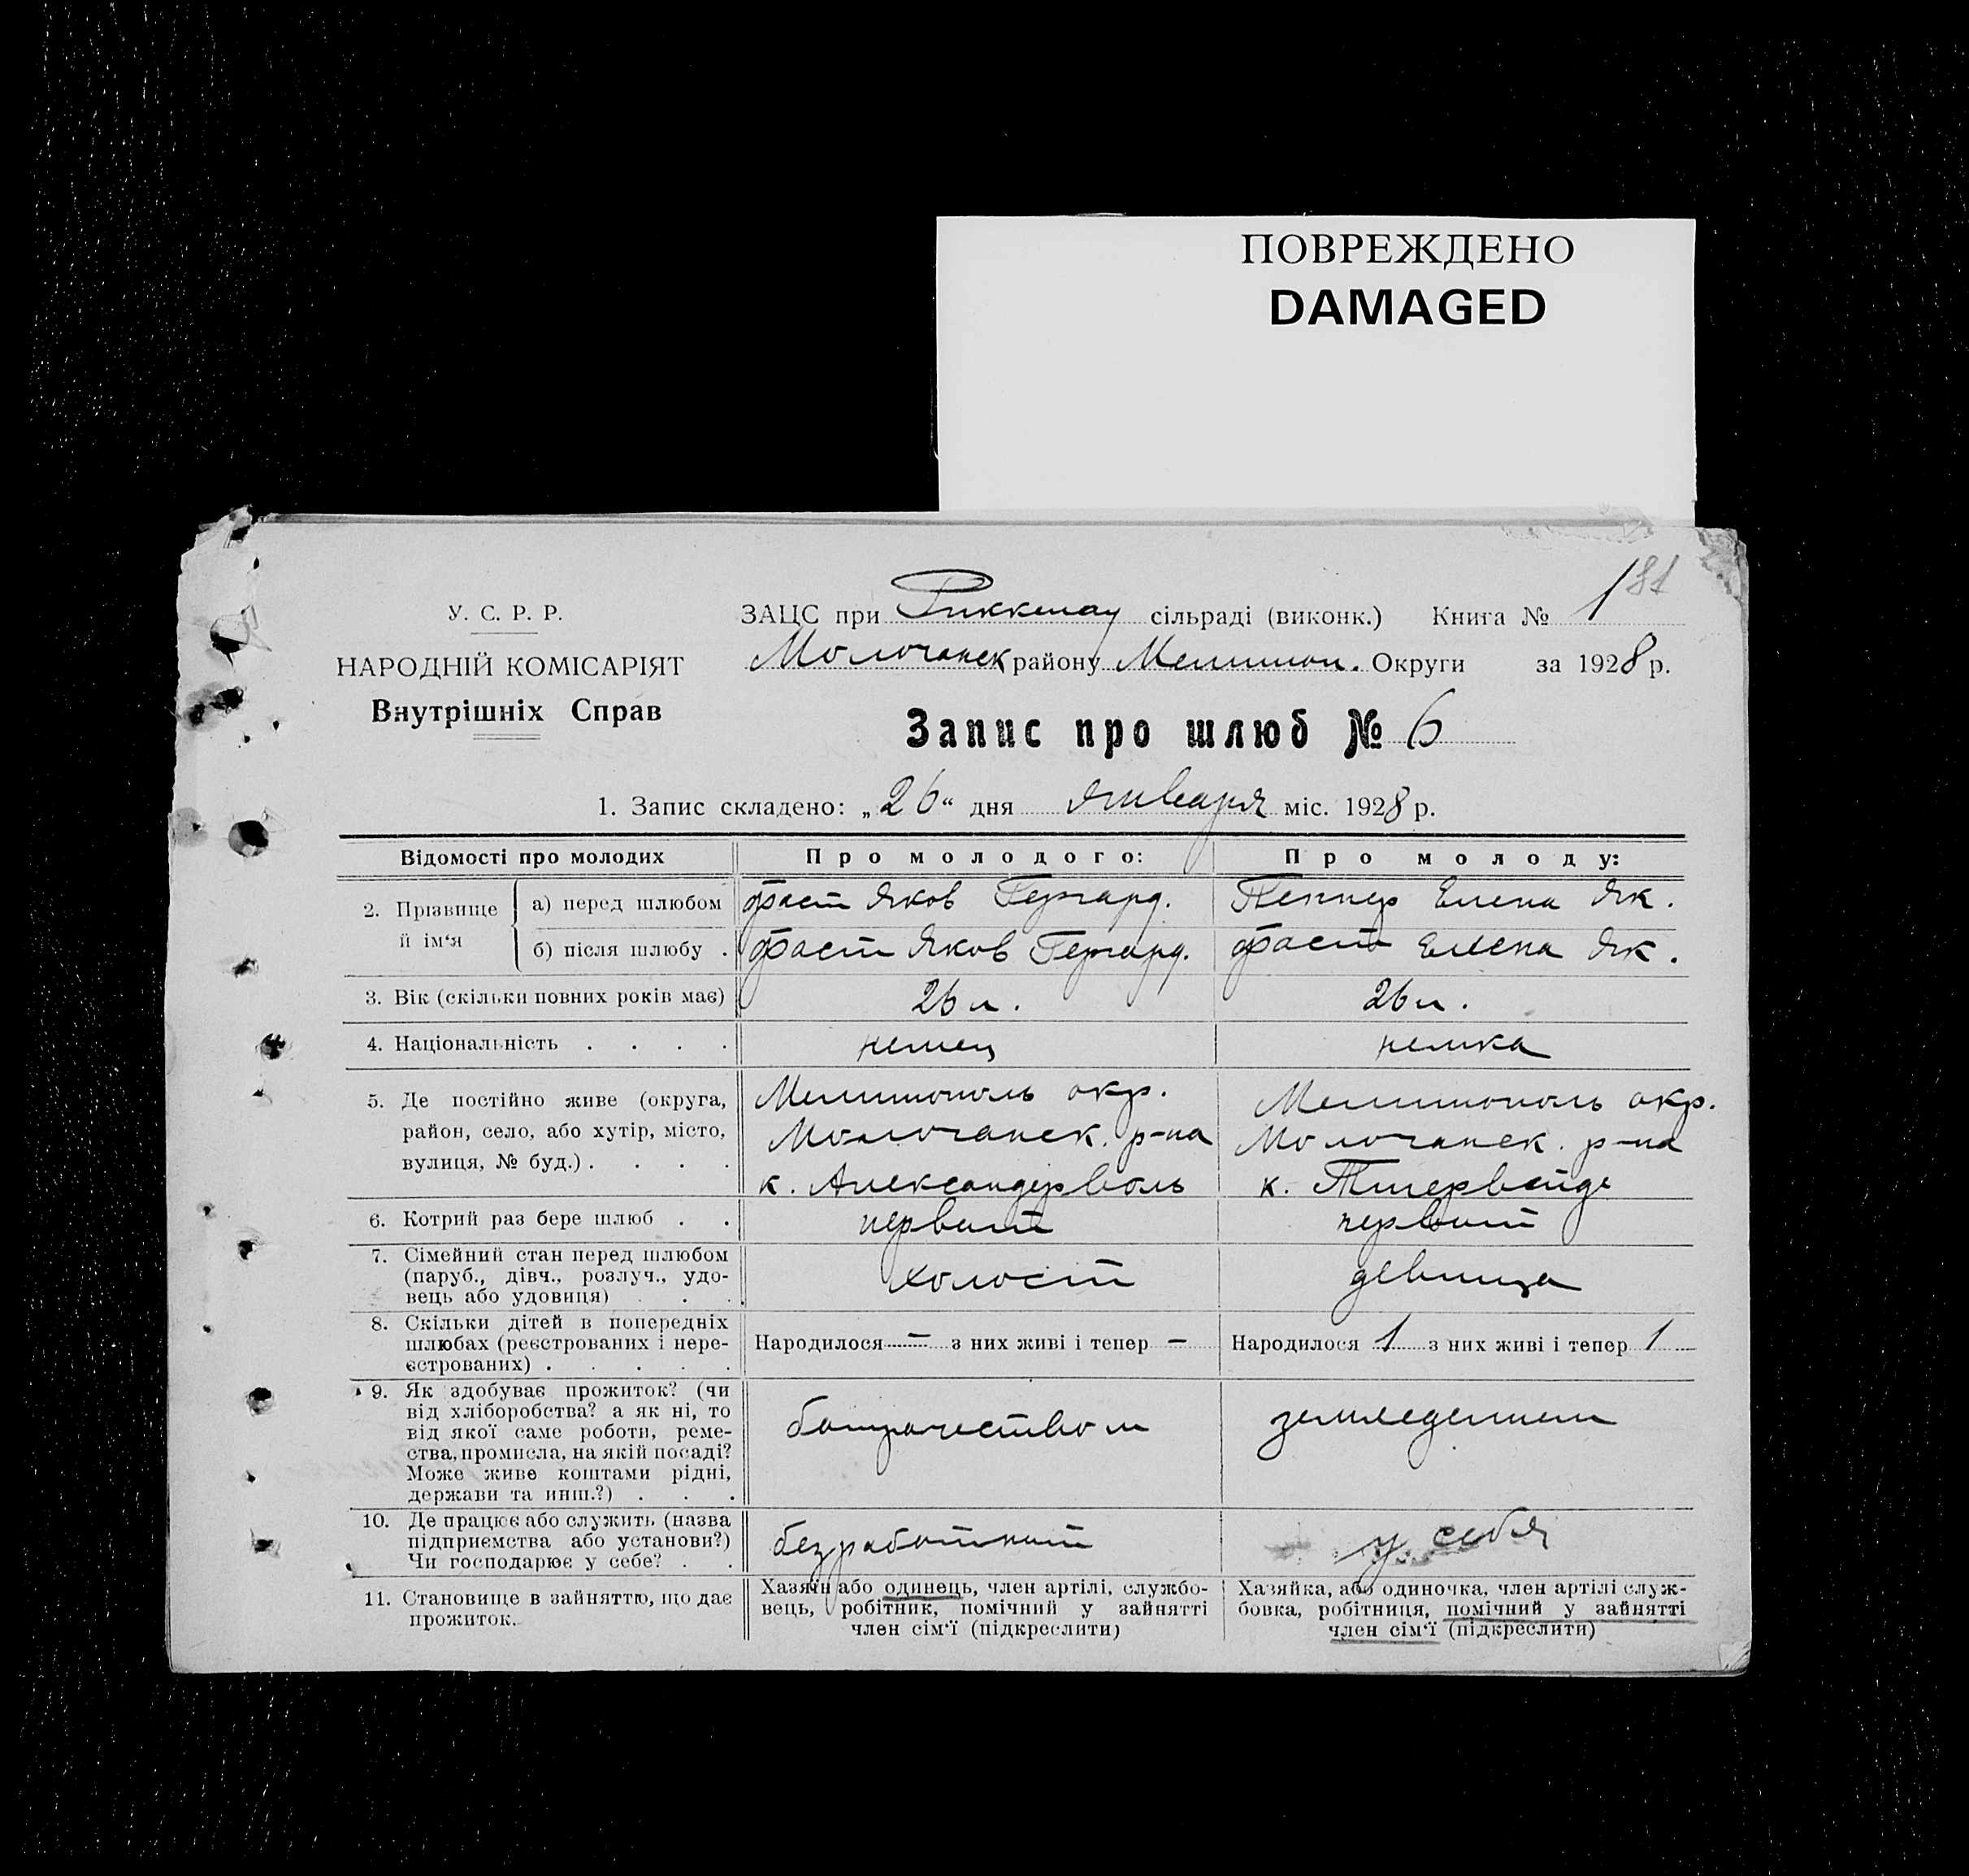 ПОВРЕЖДЕНО
DAMAGED
181
У. С. Р. Р.
НАРОДНІЙ КОМІСАРІЯТ
Внутрішніх Справ
ЗАЦС при Риккенау сільраді (виконк.) Книга № 1
Молочанск району Мелитоп. Округи за 1928 р.
Запис про шлюб № 6
1. Запис складено: „26“ дня января міс. 1928 р.
Відомості про молодих
Про молодого:
Про молоду:
2. Прізвище й ім‘я
а) перед шлюбом
Фаст Яков Гергард.
Пеннер Елена Як.
б) після шлюбу .
Фаст Яков Гергард.
Фаст Елена Як.
3. Вік (скільки повних років має)
26 л.
26 л.
4. Національність . . . .
немец
немка
5. Де постійно живе (округа,
район, село, або хутір, місто,
вулиця, № буд.) . . . .
Мелитополь окр.
Молочанск. р-на
к. Александерволь
Мелитополь окр.
Молочанск. р-на
к. Тигервейде
6. Котрий раз бере шлюб . .
первый
первый
7. Сімейний стан перед шлюбом
(паруб., дівч., розлуч., удо-
вець або удовиця) . . .
холост
девица
8. Скільки дітей в попередніх
шлюбах (реєстрованих і нере-
єстрованих) . . . . .
Народилося — з них живі і тепер —
Народилося 1 з них живі і тепер 1
9. Як здобуває прожиток? (чи
від хліборобства? а як ні, то
від якої саме роботи, реме-
ства, промисла, на якій посаді?
Може живе коштами рідні,
держави та инш.?) . . .
батрачеством
земледелием
10. Де працює або служить (назва
підприємства або установи?)
Чи господарює у себе? . .
безработный
у себя
11. Становище в зайняттю, що дає
прожиток.
Хазяїн або одинець, член артілі, службо-
вець, робітник, помічний у зайнятті
член сім‘ї (підкреслити)
Хазяйка, або одиночка, член артілі служ-
бовка, робітниця, помічний у зайнятті
член сім‘ї (підкреслити)